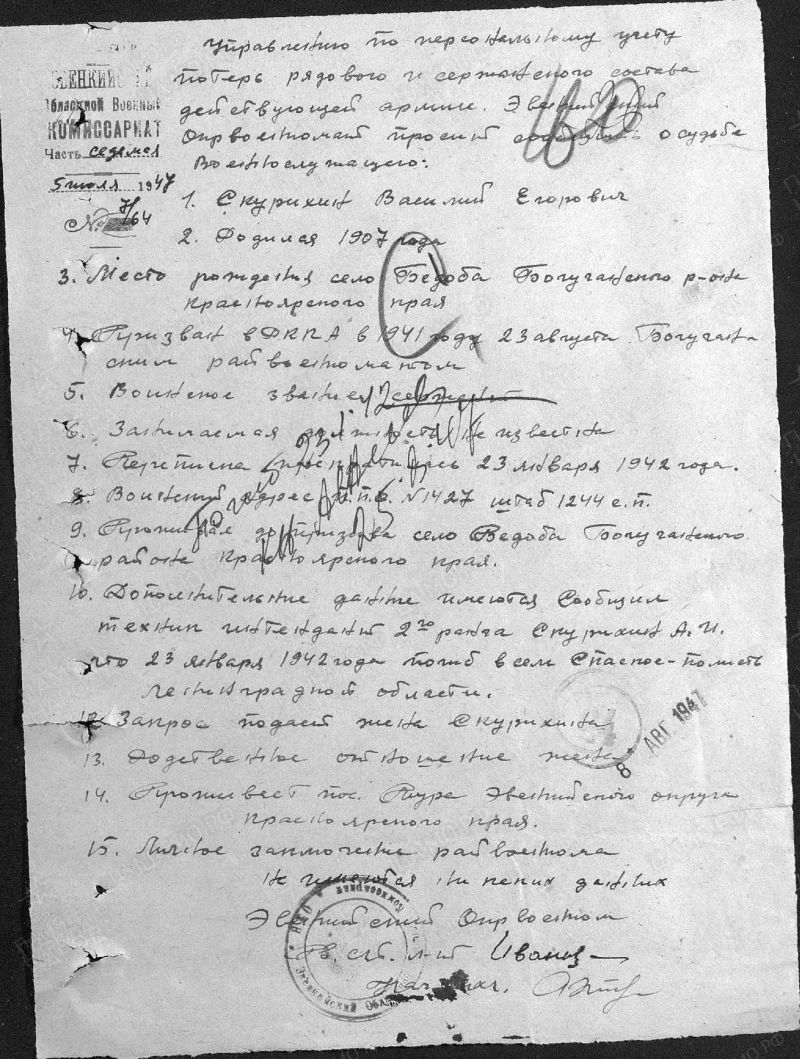 ВЕНКИЙ
Областной Военный
КОМИССАРИАТ
Часть седьмая
5 июля 1947
№ 7/64
Управлению по персональному учету
потерь рядового и сержанского состава
действующей армии. Эвенкийский
Окрвоенкомат просит сообщить о судьбе
Военнослужащего:
1. Скурихин Василий Егорович
2. Родился 1907 года
3. Место рождения село Бедоба Богучанского р-она
Красноярского края
4. Призван в РККА в 1941 году 23 августа Богучан-
ским райвоенкоматом
5. Воинское звание сержант
6. Занимаемая должность не известна
7. Переписка прекратилась 23 января 1942 года.
8. Воинский адрес п.п.с. №1427 штаб 1244 с.п.
9. Проживал до призыва село Ведоба Богучанского
района Красноярского края.
10. Дополнительные данные имеются Сообщил
техник интендант 2го ранга Скурихин А.И.
что 23 января 1942 года погиб в селе Спаское-полисть
ленинградской области.
12. Запрос подает жена Скурихина
13. Родственное отношение жена
14. Проживает пос. Тура Эвенкийского округа
Красноярского края.
15. Личное заключение райвоенкома
не имеются ни каких данных
Эвенкийский Окрвоенком
Гв. ст. л-т Иванц
Нач.
8 АВГ 1947